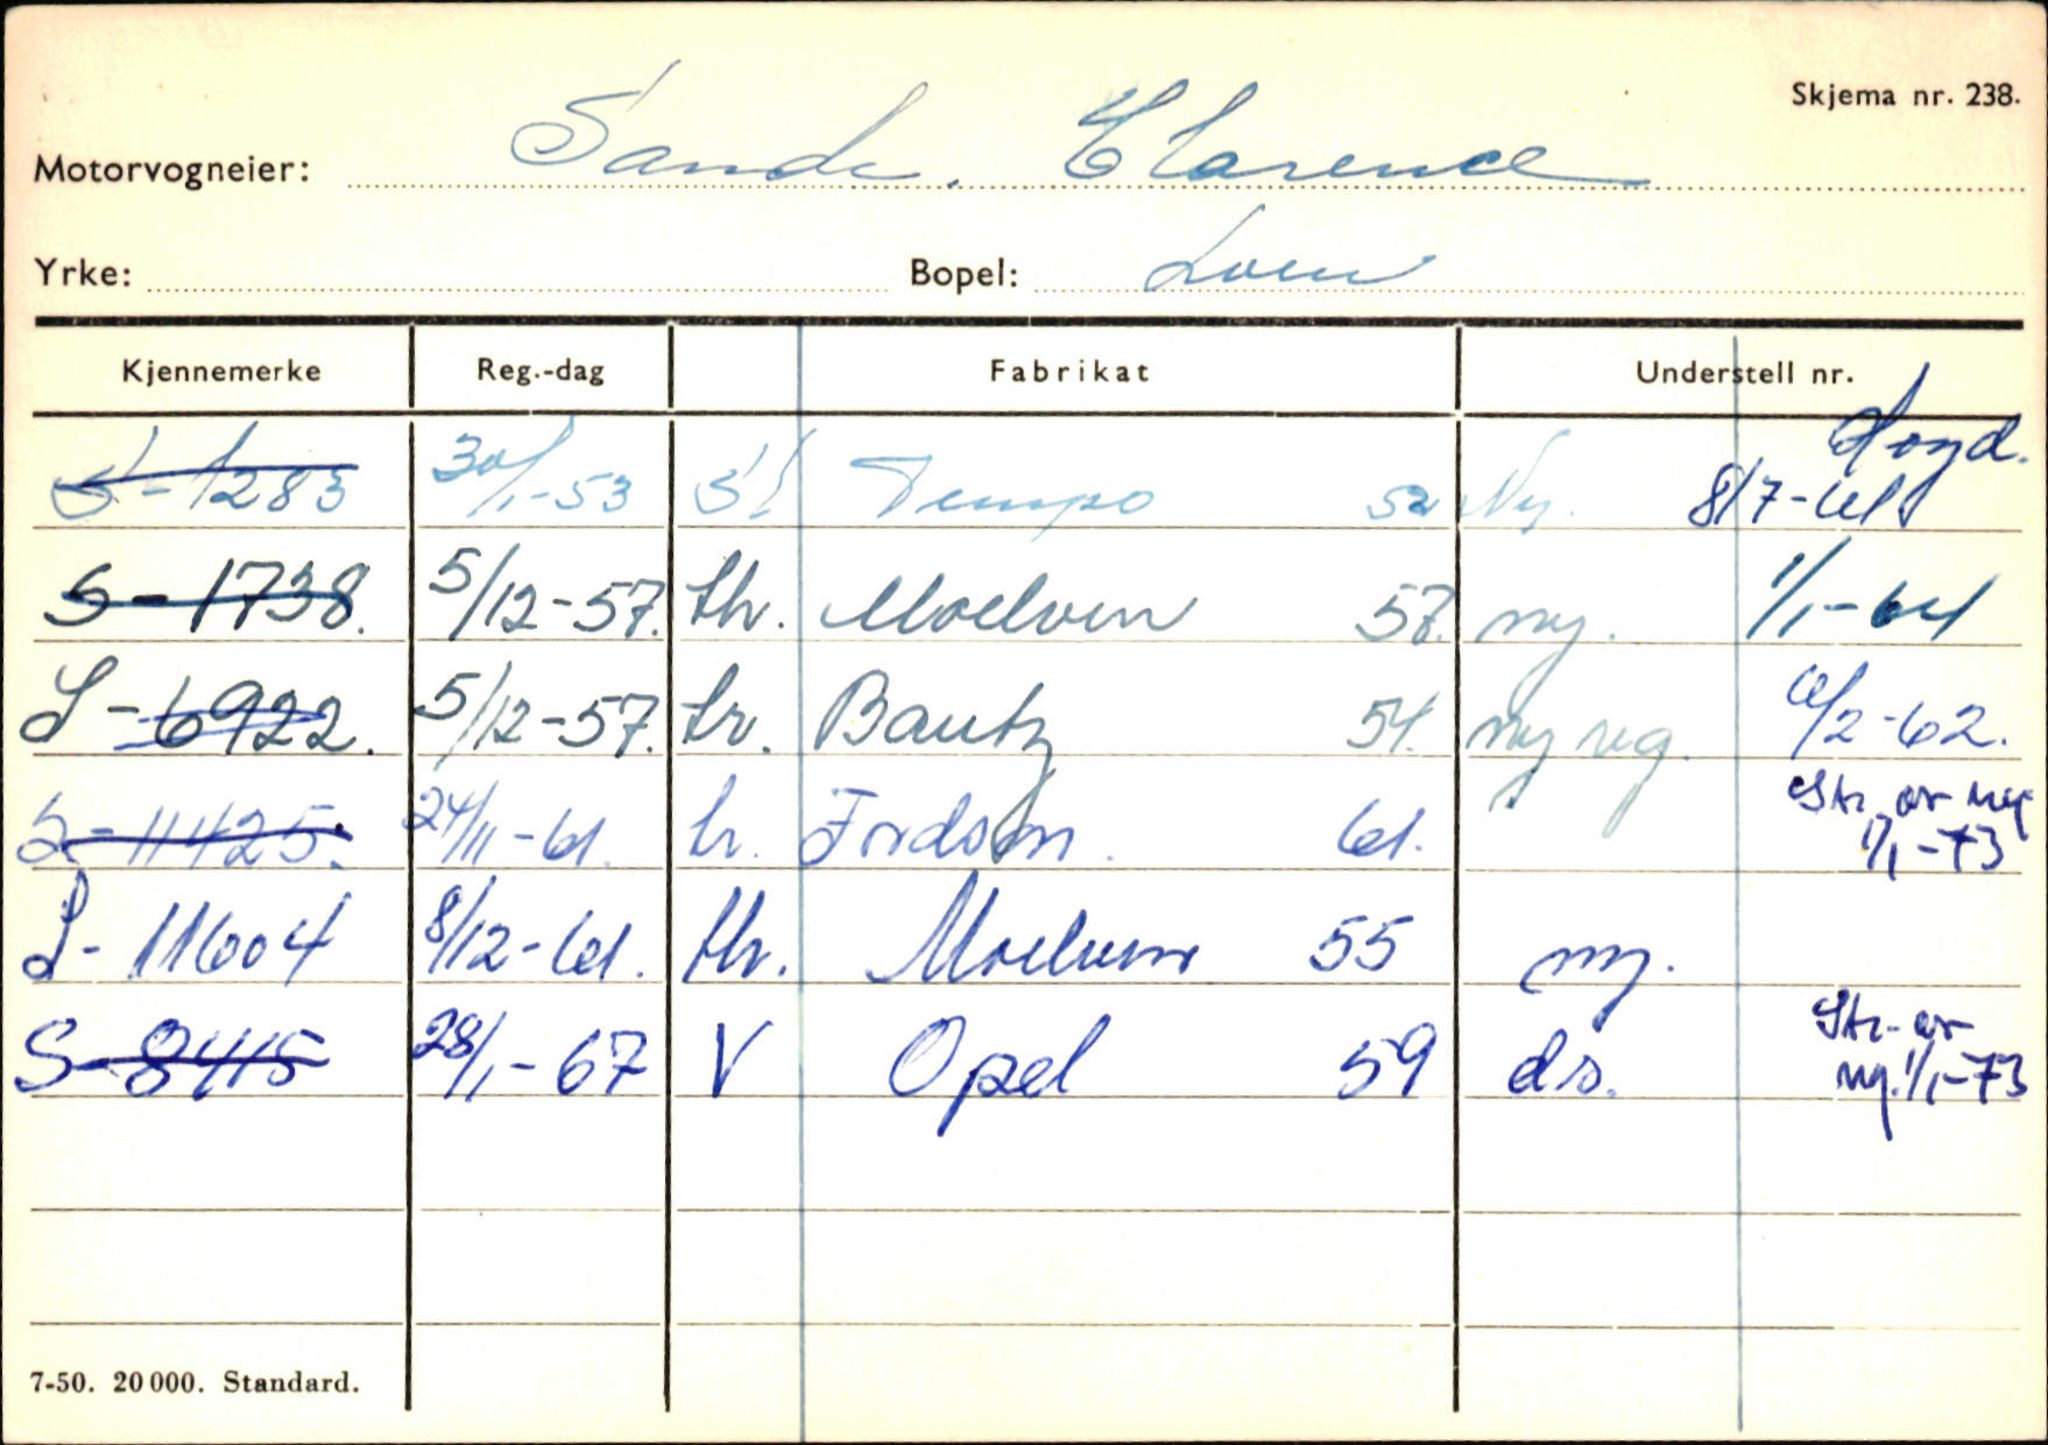 Skjema nr. 238.
Motorvogneier: Sande. Clarence
Yrke: Bopel: Loen
Kjennemerke Reg.-dag Fabrikat Understell nr.
S-1283 30/1-53 Tempo 52 Ny. 8/7-61
S-1738. 5/12-57. thr. Moelven 57. ny. 1/1-64
S-6922. 5/12-57. tr. Bautz 54. ny reg. 6/2-62.
S-11425. 24/11-61. tr. Fordson. 61. Str. av reg 1/1-73
S-11604 8/12-61. thr. Moelven 55 ny.
S-8415 28/1-67 V Opel 59 ds. Str. av reg. 1/1-73
7-50. 20 000. Standard.